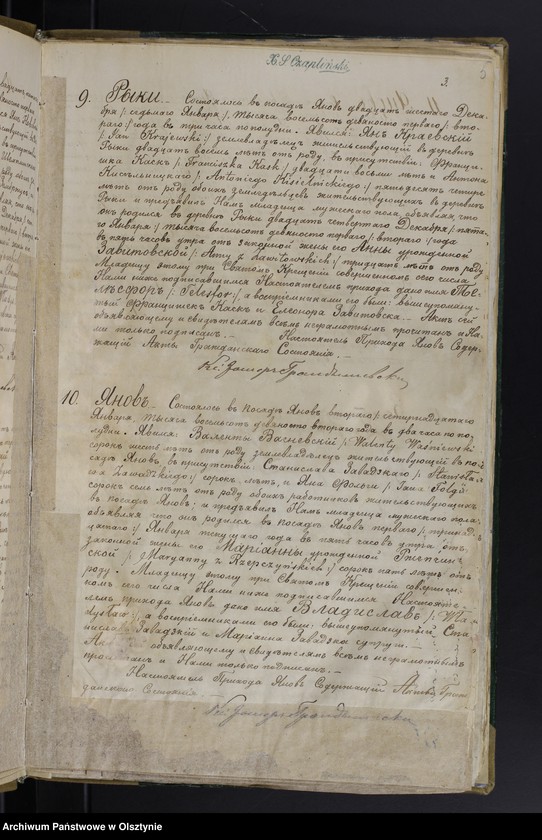 X S Czapliński
3.
9. Рыки. Состоялось въ посадѣ Яновъ двадцать шестаго Дека-
бря /: седьмаго Января :/ тысяча восемьсотъ девяносто перваго /: вто-
раго :/ года въ три часа по полудни. Явился: Янъ Краевскій
/: Jan Krajewski :/ земледѣлецъ жительствующій въ деревнѣ
Рыки двадцать восемь лѣтъ отъ роду, въ присутствіи: Франци-
шка Каскъ /: Franciszka Kask :/ двадцати восьми лѣтъ и Антона
Кисѣльницкаго /: Antoniego :/ пятьдесятъ четыре
лѣтъ отъ роду обоихъ земледѣльцевъ жительствующихъ въ деревнѣ
Рыки и предъявилъ Намъ младенца мужескаго пола, объявляя, что
онъ родился въ деревнѣ Рыки двадцать четвертаго Декабря /: пята-
го Января :/ тысяча восемьсотъ девяносто перваго /: втораго :/ года
въ пять часовъ утра отъ законной жены его Анны урожденной
Завитовской /: Anny z Zawitowskich :/ тридцать лѣтъ отъ роду
Младенцу этому при Святомъ Крещеніи совершенномъ сего числа
Нами ниже подписавшимся Настоятелемъ прихода дано имя Тэле-
сфоръ /: Telesfor :/ а воспріемниками его были: вышеупомяну-
тый Францишекъ Каскъ и Елеонора Завитовска. Актъ сей
объявляющему и свидѣтелямъ всѣмъ неграмотнымъ прочитанъ и На-
ми только подписанъ. Настоятель Прихода Яновъ Содер-
жащій Акты Гражданскаго Состоянія.
10. Яновъ. Состоялось въ посадѣ Яновъ втораго /: четырнадцатаго
Января тысяча восемьсотъ девяносто втораго года въ два часа по по-
лудни. Явился: Валенты Васневскій /: Walenty Waśniewski
сорокъ шесть лѣтъ отъ роду земледѣлецъ жительствующій въ по-
садѣ Яновъ, въ присутствіи: Станислава Завадзкаго /: Stanisła-
wa Zawadzkiego :/ сорокъ лѣтъ, и Яна /: Jana
сорокъ семь лѣтъ отъ роду обоихъ работниковъ жительствующихъ
въ посадѣ Яновъ: и предъявилъ Намъ младенца мужескаго пола,
объявляя что онъ родился въ посадѣ Яновъ перваго /: тринад-
цатаго :/ Января текущаго года въ пять часовъ утра отъ
законной жены его Маріанны урожденной Ржепчин-
ской /: Maryanny z Rzepczyńskich :/ сорокъ пать лѣтъ отъ
роду. Младенцу этому при Святомъ Крещеніи совершен-
номъ сего числа Нами ниже подписавшимся Настояте-
лемъ прихода Яновъ дано имя Владиславъ /: Wła-
dysław :/ а воспріемниками его были: вышеупомянутый Ста-
ниславъ Завадзкій и Маріанна Завадзка супруги.
объявляющему и свидѣтелямъ всѣмъ неграмотнымъ
прочитанъ и Нами только подписанъ.
Настоятель Прихода Яновъ Содержащій Акты Граж-
данскаго Состоянія
Archiwum Państwowe w Olsztynie